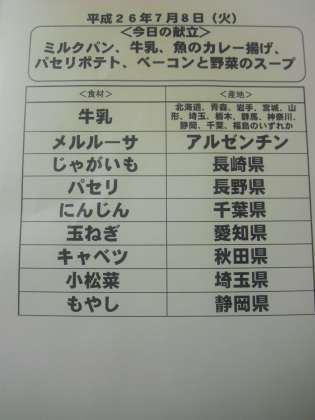 平成２６年７月８日（火）
＜今日の献立＞
ミルクパン、牛乳、魚のカレー揚げ、
パセリポテト、ベーコンと野菜のスープ
＜食材＞ ＜産地＞
牛乳 北海道、青森、岩手、宮城、山
形、埼玉、栃木、群馬、神奈川、
静岡、千葉、福島のいずれか
メルルーサ アルゼンチン
じゃがいも 長崎県
パセリ 長野県
にんじん 千葉県
玉ねぎ 愛知県
キャベツ 秋田県
小松菜 埼玉県
もやし 静岡県